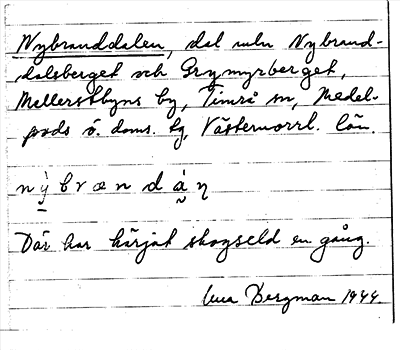 Nybranddalen, dal mln Nybrand-
dalsberget och Grymyrberget,
Mellerstbyns by, Timrå sn, Medel-
pads ö. doms. tg, Västernorrl. län.
n ỳ̠ b r æ n d á̬ ŋ
Där har härjat skogseld en gång.
Bergman 1944.